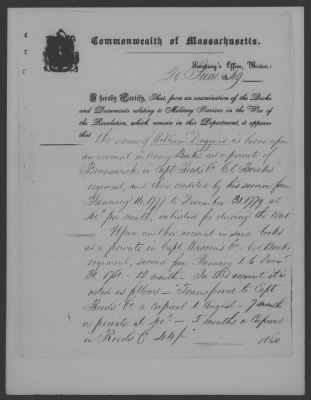 Commonwealth of Massachusetts.
Secretary's Office, Boston:
20 June 1849
I hereby Certify, That, from an examination of the Books
and Documents relating to Military Services in the War of
the Revolution, which remain in this Department, it appears
that the name of William is borne upon
an account in Army Books as a private of
Brunswick in Capt Reeds Co. Col Brooks
regiment, and there credited by his service from
January 1. 1777 to December 31. 1779 at
40/ per month, enlisted for during the War
Upon another account in same books
as a private in Capt Warren's Co. Col Brooks
regiment, served from January 1 to Decemr
31. 1780. - 12 month - In this account it is
noted as follows - "Transferred to Capt
Reeds' Co a corporal 1. August - 7 month
as private at 40/ - 5 months a Corporal
in Reeds Co 44/"
Also